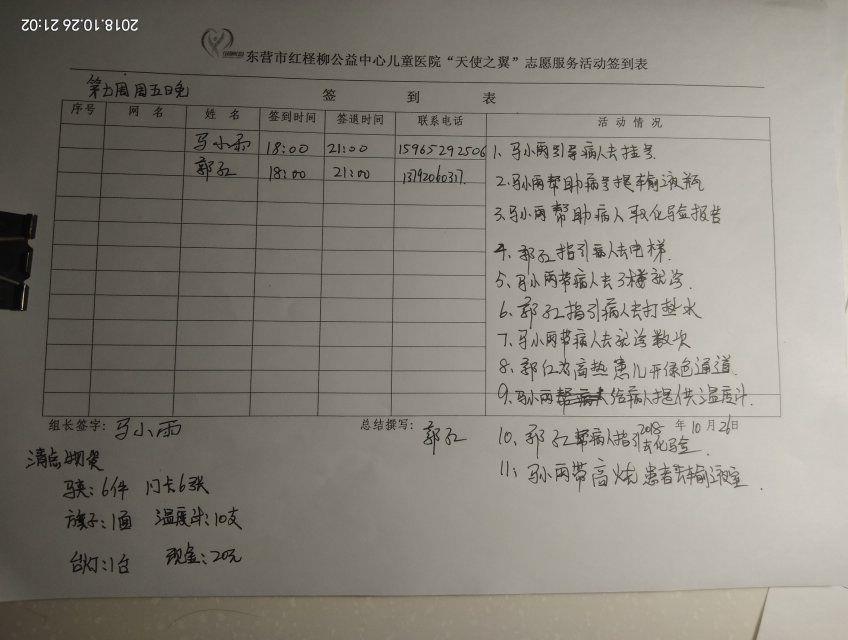 2018.10.26 21:02
东营市红柽柳公益中心儿童医院“天使之翼”志愿服务活动签到表
第五周周五日晚
签 到 表
序号 网 名 姓 名 签到时间 签退时间 联系电话 活动情况
马小雨 18:00 21:00 15965292506
郭红 18:00 21:00
1、马小雨引导病人去挂号
2、马小雨帮助病号提输液瓶
3、马小雨帮助病人取化验报告
4、郭红指引病人去电梯.
5、马小雨带病人去3楼就诊.
6、郭红指引病人去打热水
7、马小雨带病人去就诊数次
8、郭红为高热患儿开绿色通道.
9、马小雨给病人提供温度计.
组长签字: 马小雨 总结撰写: 郭红 2018 年 10 月 26日
10、郭红帮病人指引去化验
11、马小雨带高烧患者去输液室.
清点物资
马夹:6件 门卡6张
旗子:1面 温度计:10支
台灯:1台 现金:20元